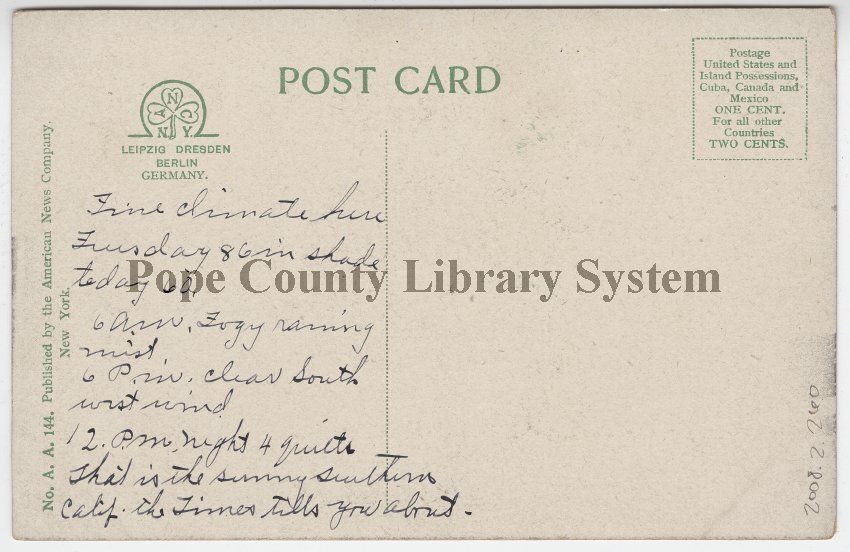 POST CARD
Postage
United States and
Island Possessions,
Cuba, Canada and
Mexico
ONE CENT.
For all other
Countries
TWO CENTS.
A N C
N. Y.
LEIPZIG DRESDEN
BERLIN
GERMANY.
No. A. A. 144. Published by the American News Company,
New York.
Fine climate here
Tuesday 86 in shade
today 60
6 a.m. Fogy raining
mist
6 P.m. clear South
west wind
12. P.m. night 4 quilts
that is the sunny southern
Calif. the Times tells you about.
Pope County Library System
2008.2.260